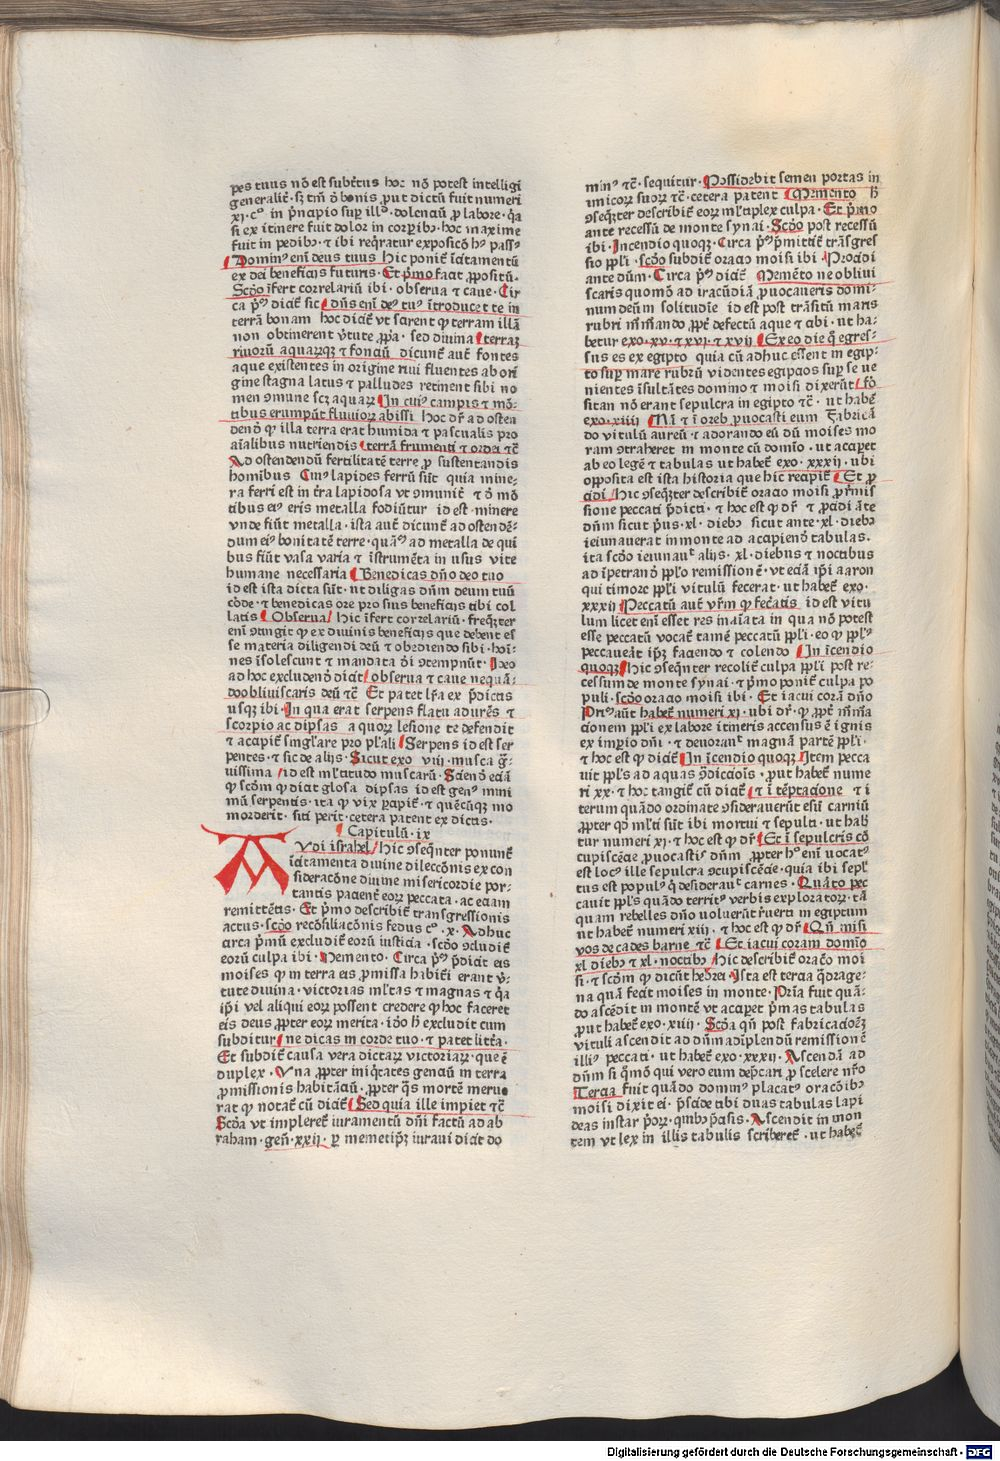 pes tuus nō est subt̄tus hoc nō potest intelligi
generalit̄· sꝫ tm̄ ō bonis ꝓut dictū fuit numeri
xj·c° in p̄ncipio suꝑ illo dolenciū ꝓ labore· q̇a
si ex itinere fuit dolor in corꝑibꝰ hoc maxime
fuit in pedibꝰ· ⁊ ibi reqͥratur exposicō hꝰ passꝰ
Dominꝰ em̄ deus tuus hic ponit̄ īcitamentū
ex dei beneficijs futuris· Et pͥmo facit ꝓpositū·
Scd̄o īfert correlariū ibi· obserua ⁊ caue· Cir
ca pͥꝰ dicit̄ sic dn̄s em̄ deꝰ tuꝰ ītroducet te in
terrā bonam hoc dicit̄ vt scirent ꝙ terram illā
non obtinerent v̄tute ꝓpͥa· sed diuina terraꝫ
riuorū aquarūqꝫ ⁊ fonciū dicunt̄ aut̄ fontes
aque existentes in origine riui fluentes ab ori
gine stagna latus ⁊ palludes retinent sibi no
men ꝯmune scꝫ aquaꝝ In cuiꝰ campis ⁊ mō:
tibus erumpūt fluuiorꝝ abissi hoc dr̄ ad osten
dendū ꝙ illa terra erat humida ⁊ pascualis pro
aīalibus nutriendis terrā frumenti ⁊ ordei ⁊c̄
Ad ostendendū fertilitatē terre ꝓ sustentandis
homībus Cuiꝰ lapides ferrū sūt quia mine:
ra ferri est in t̄ra lapidosa vt ꝯmunit̄ ⁊ ō mō
tibus eiꝰ eris metalla fodiūtur id est minere
vnde fiūt metalla· ista aut̄ dicunt̄ ad ostendē:
dum eiꝰ bonitatē terre· quā° ad metalla de qui
bus fiūt vasa varia ⁊ īstrumēta in usus vite
humane necessaria Benedicas dn̄o deo tuo
id est ista dicta sūt· ut diligas dn̄m deum tuū
corde· ⁊ benedicas ore pro suis beneficijs tibi col
latis Obserua hic īfert correlariū· freqn̄ter
em̄ ꝯtingit ꝙ ex diuinis beneficijs que debent es
se materia diligendi deū ⁊ obediendo sibi· hoī:
nes īsolescunt ⁊ mandata di ꝯtempnūt· Ideo
ad hoc excludendō dicit obserua ⁊ caue nequā:
do obliuiscaris deū ⁊c̄ Et patet lr̄a ex p̄dictis
usqꝫ ibi· In qua erat serpens flatu adurēs ⁊
scorpio ac dipsas a quoꝝ lesione te defendit
⁊ acapit̄ singl'are pro pl'ali Serpens id est ser
pentes· ⁊ sic de alijs· Sicut exo viij· musca g̃·
uissima id est ml'titudo muscarū· Sciendū eciā
ꝙ scd̄m ꝙ dicit glosa dipsas id est genꝰ mini
mū serpentis· ita ꝙ vix ꝑcipit̄· ⁊ quēcūqꝫ mo
morderit· siti perit· cetera patent ex dictis·
Capitulū· ix
AVdi israhel hic ꝯseqn̄ter ponunt̄
īcitamenta diuine dileccōnis ex con
sideracōne diuine misericordie por:
tantis pacient̄ eorꝝ peccata· ac eciam
remittētis· Et p̄mo describit̄ transgressionis
actus· scd̄o recōsiliacōnis fedus c°· x· Adhuc
circa p̄mū excludit̄ eorū iusticia· scd̄o ꝯcludit̄
eorū culpa ibi· Memento· Circa pͥꝰ p̄dicit eis
moises ꝙ in terra eis ꝓmissa habit̄i erant v̄:
tute diuina· victorias ml'tas ⁊ magnas ⁊ q̇a
ip̄i vel aliqui eorꝝ possent credere ꝙ hoc faceret
eis deus ꝓpter eorꝝ merita· ido h̄ excludit cum
subditur ne dicas in corde tuo· ⁊ patet litr̄a·
Et subdit̄ causa vera dictaꝝ victoriaꝝ· que ē
duplex· Vna ꝓpter iniqͥtates genciū in terra
ꝓmissionis habitāciū· ꝓpter q̄s mortē merue
rāt ꝙ notat̄ cū dicit̄ Sed quia ille impiet ⁊c̄
Scd̄a vt impleret̄ iuramentū dn̄i factū ad ab
raham· gen̄· xxij· ꝑ memetip̄ꝫ iuraui dicit do
minꝰ ⁊c̄· sequitur· Possidebit semen portas in
imicoꝝ suoꝝ ⁊c̄· cetera patent Memento h̄
ꝯseqn̄ter describit̄ eorꝝ ml'tiplex culpa· Et p̄mo
ante recessū de monte synai· Scd̄o post recessū
ibi· Incendio quoqꝫ· Circa pͥꝰ p̄mittit̄ trāsgres
sio ppl'i· scd̄o subdit̄ oracio moisi ibi· Procidi
ante dūm· Circa pͥꝰ dicit̄ Memēto ne obliui
scaris quomō ad iracūdiā ꝓuocaueris domi:
num deūm solitudīe id est post trāsitū maris
rubri ꝓpt̄ defectū aque ⁊ cibi· ut ha:
betur exo· xv· ⁊ xvj· ⁊ xvij Ex eo die q̄ egres:
sus es ex egipto quia cū adhuc essent in egip:
to suꝑ mare rubrū videntes egipcios suꝑ se ue
nientes īsultātes domino ⁊ moisi dixerūt fō
sitan nō erant sepulcra in egipto ⁊c̄· ut habet̄
exo· xiiij Nā ⁊ ī oreb ꝓuocasti eum Fabricā
do vitulū aureū ⁊ adorando eū dū moises mo
ram ꝯtraheret in monte cū domīo· ut aciꝑet
ab eo legē ⁊ tabulas ut habet̄ exo· xxxij· ubi
opposita est ista historia que hic recipit̄ Et ꝓ
cidi hic ꝯseqn̄ter describit̄ oracio moisi ꝓ r̄mis
sione peccati p̄dicti· ⁊ hoc est ꝙ dr̄ ⁊ ꝓcidi āte
dn̄m sicut p̄us· xl· diebꝫ sicut ante· xl· diebꝫ
ieiunauerat in monte ad accipiendū tabulas·
ita scd̄o ieiunauit alijs· xl· diebus ⁊ noctibus
ad īpetrandū ppl'o remissionē· vt eciā ip̄i aaron
qui timore ppl'i vitulū fecerat· ut habet̄ exo·
xxxij Peccatū aut̄ vr̄m ꝙ fecātis id est vitu
lum licet em̄ esset res inaīata in qua nō potest
esse peccatū vocat̄ tamē peccatū ppl'i· eo ꝙ ppl'ꝰ
peccaueāt ip̄ꝫ faciendo ⁊ colendo In īcendio
quoqꝫ hic ꝯseqn̄ter recolit̄ culpa ppl'i post re:
cessum de monte synai· ⁊ p̄mo ponit̄ culpa po
puli· scd̄o oracio moisi ibi· Et iacui corā dn̄o
Primꝰ aūt habet̄ numeri xj· ubi dr̄· ꝙ ꝓpt̄
cionem ppl'i ex labore itineris accensus ē ignis
ex imꝑio dn̄i· ⁊ deuorauit magnā partē ppl'i·
⁊ hoc est ꝙ dicit̄ In īcendio quoqꝫ Item pecca
uit ppl's ad aquas ꝯdicciōis· ꝓut habet̄ nume
ri xx· ⁊ hoc tangit̄ cū dicit̄ ⁊ ī tēptacione ⁊ i
terum quādo ordinate ꝯsiderauerūt esū carniū
ꝓpter qd̄ ml'ti sūt ibi mortui ⁊ sepulti· ut hab
tur numeri xj· ⁊ hoc est ꝙ dr̄ Et ī sepulcris cō
cupiscēcie ꝓuocastis dn̄m ꝓpter hꝰ em̄ uocatꝰ
est locꝰ ille sepulcra ꝯcupiscēcie· quia ibi sepl'
tus est populꝰ q̄ desiderauit carnes· Quarto pec
cauit ppl's quādo territꝰ verbis exploratorꝝ· tā
quam rebelles dn̄o uoluerūt r̄uerti in egiptum
ut habet̄ numeri xiij· ⁊ hoc est ꝙ dr̄ Qn̄ misi
vos de cades barne ⁊c̄ Et iacui coram domīo
xl diebꝫ ⁊ xl· noctibꝫ Hic describit̄ oracō moi
si· ⁊ scd̄m ꝙ dicūt hebrei Ista est tercia q̄drage:
na quā fecit moises in monte· Pr̄ia fuit quā:
do ascēdit in montē vt aciꝑet p̄mas tabulas
ꝓut habet̄ exo· xiiij· Scd̄a qn̄ post fabricacōēꝫ
vituli ascendit ad dn̄m adīplendū remissionē
illiꝰ peccati· ut habet̄ exo· xxxij· Ascendā ad
dn̄m si qͦmō qui vero eum dep̄cari ꝓ scelere nr̄o
Tercia fuit quādo dominꝰ placatꝰ oracōibꝫ
moisi dixit ei· p̄scide tibi duas tabulas lapi
deas instar p̄orꝝ· quibꝫ p̄cisis· Ascendit in mon
tem vt lex in illis tabulis scriberet̄· ut habet̄
Digitalisierung gefördert durch die Deutsche Forschungsgemeinschaft - DFG